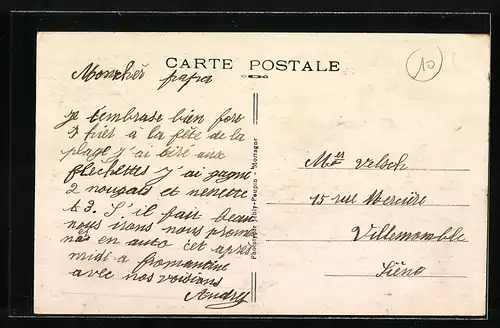 CARTE POSTALE
10
Moncher papa
je t'embrasse bien fort
hier à la fête de la
plage j'ai tiré aux
fléchettes j'ai gagné
2 nougats et
3. S'il fait beau
nous irons nous prome
ner en auto cet après
midi a fromantine
avec nos voisins
Andrey
Photo-
Mr Velsch
15 rue Mercière
Villemomble
Siène